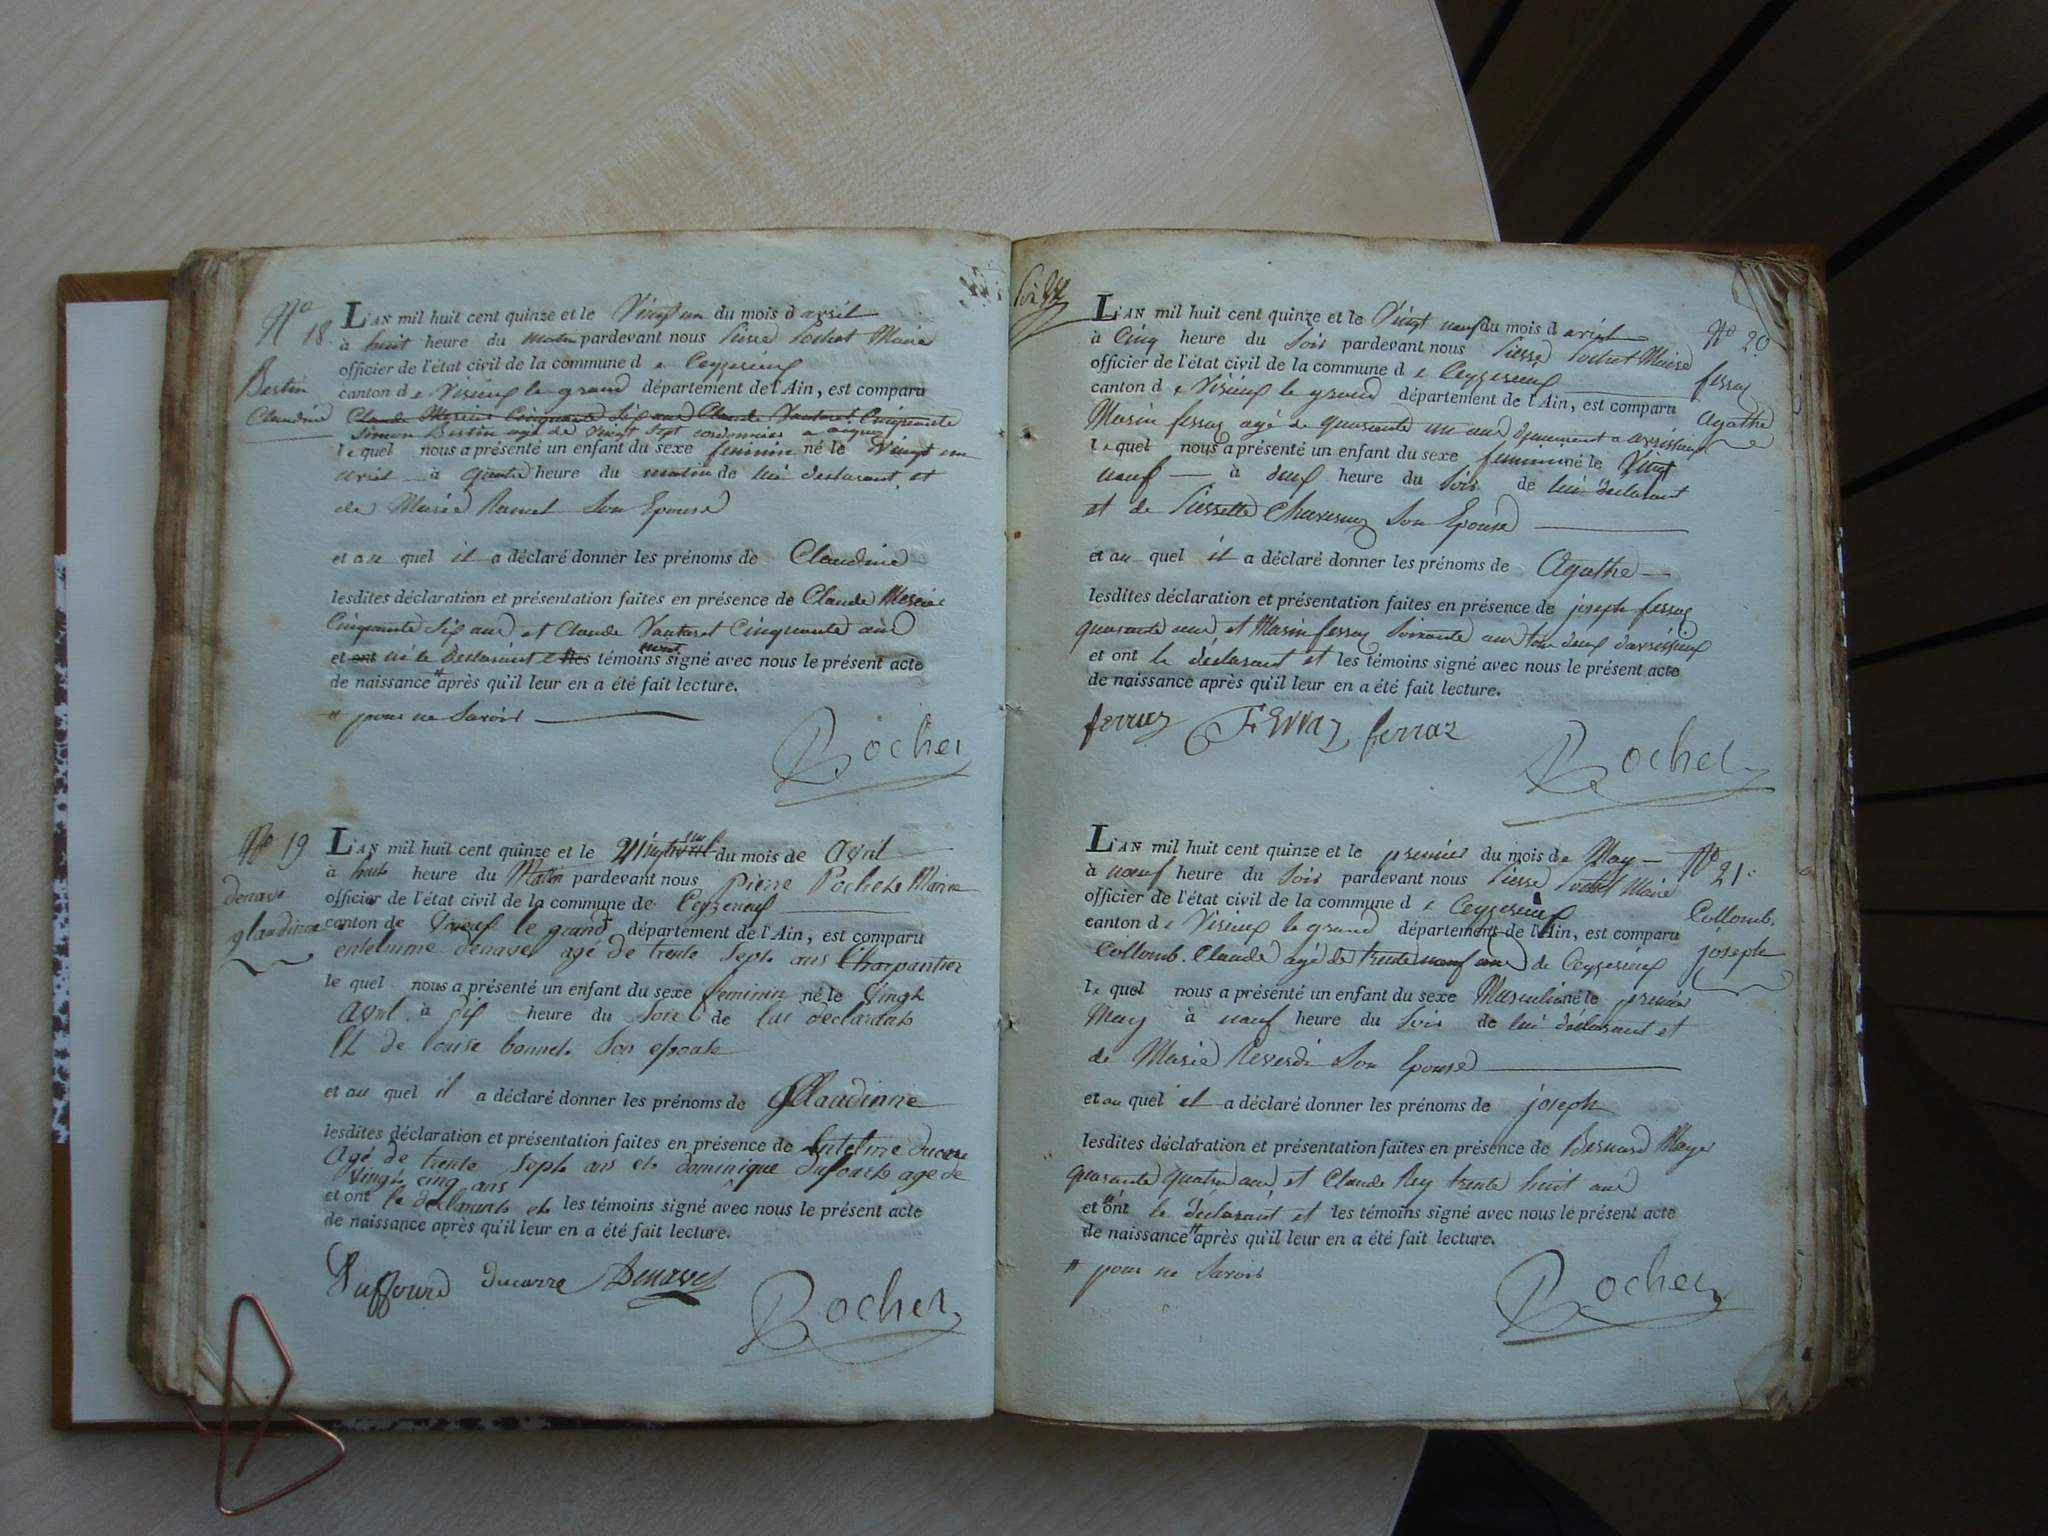 N° 18.
Bertin
Claudine
L'AN mil huit cent quinze et le Vingt un du mois d avril
à huit heure du matin pardevant nous Pierre Pochet Maire
officier de l'état civil de la commune d e Ceyzerieux
canton d e Virieux le grand département de l'Ain, est comparu
Claude Mercier Cinquante Six ans Claude Vautaret Cinquante
Simon Bertin agé de Vingt Sept cordonnier a
le quel nous a présenté un enfant du sexe feminin né le Vingt un
avril à quatre heure du matin de lui déclarant et
de Marie Ramel Son Epouse
et au quel il a déclaré donner les prénoms de Claudine
lesdites déclaration et présentation faites en présence de Claude Mercier
Cinquante Six ans et Claude Vautaret Cinquante ans
et ont ni le Déclarant et les témoins signé avec nous le présent acte
de naissance # après qu'il leur en a été fait lecture.
# pour ne Savoir
Rochet
N° 19
denave
glaudinne
L'AN mil huit cent quinze et le 21 Vingt un du mois de avril
à huit heure du Matin pardevant nous Pierre Pochet Maire
officier de l'état civil de la commune de Ceyzerieux
canton de Virieux le grand département de l'Ain, est comparu
entelmme denavel agé de trente Sept ans Charpantier
le quel nous a présenté un enfant du sexe feminin né le Vingt
avril à dix heure du Soire de lui declarant
Et de louise bonnet Son epouse
et au quel il a déclaré donner les prénoms de Glaudinne
lesdites déclaration et présentation faites en présence de Entelme ducarre
Agé de trente Sept ans et dominique Dufourt age de
Vingt cinq ans
et ont le declarant et les témoins signé avec nous le présent acte
de naissance après qu'il leur en a été fait lecture.
Duffourd Ducarre Denavel
Rochet
L'AN mil huit cent quinze et le Vingt neuf du mois d avril
à Cinq heure du Soir pardevant nous Pierre Pochet Maire
officier de l'état civil de la commune d e Ceyzerieux
canton d e Virieux le grand département de l'Ain, est comparu
Marin ferraz agé de quarante un ans a avrissieux
le quel nous a présenté un enfant du sexe feminin né le Vingt
neuf à deux heure du Soir de lui déclarant
et de Pierrette Son Epouse
et au quel il a déclaré donner les prénoms de Agathe
lesdites déclaration et présentation faites en présence de joseph ferraz
quarante ans et Marin ferraz Soixante ans tous deux d'avrissieux
et ont le déclarant et les témoins signé avec nous le présent acte
de naissance après qu'il leur en a été fait lecture.
ferraz Ferraz ferraz
Rochet
N° 20
ferraz
Agathe
L'AN mil huit cent quinze et le premier du mois de May
à neuf heure du Soir pardevant nous Pierre Pochet Maire
officier de l'état civil de la commune d e Ceyzerieux
canton d e Virieux le grand département de l'Ain, est comparu
Collomb. Claude agé de trente neuf ans de Ceyzerieux
le quel nous a présenté un enfant du sexe Masculin né le premier
May à neuf heure du Soir de lui déclarant et
de Marie Reverdi Son Epouse
et au quel il a déclaré donner les prénoms de joseph
lesdites déclaration et présentation faites en présence de Bernard Mayer
quarante quatre ans et Claude Rey trente huit ans
et n'ont le déclarant et les témoins signé avec nous le présent acte
de naissance # après qu'il leur en a été fait lecture.
# pour ne Savoir
Rochet
N° 21.
Collomb.
joseph